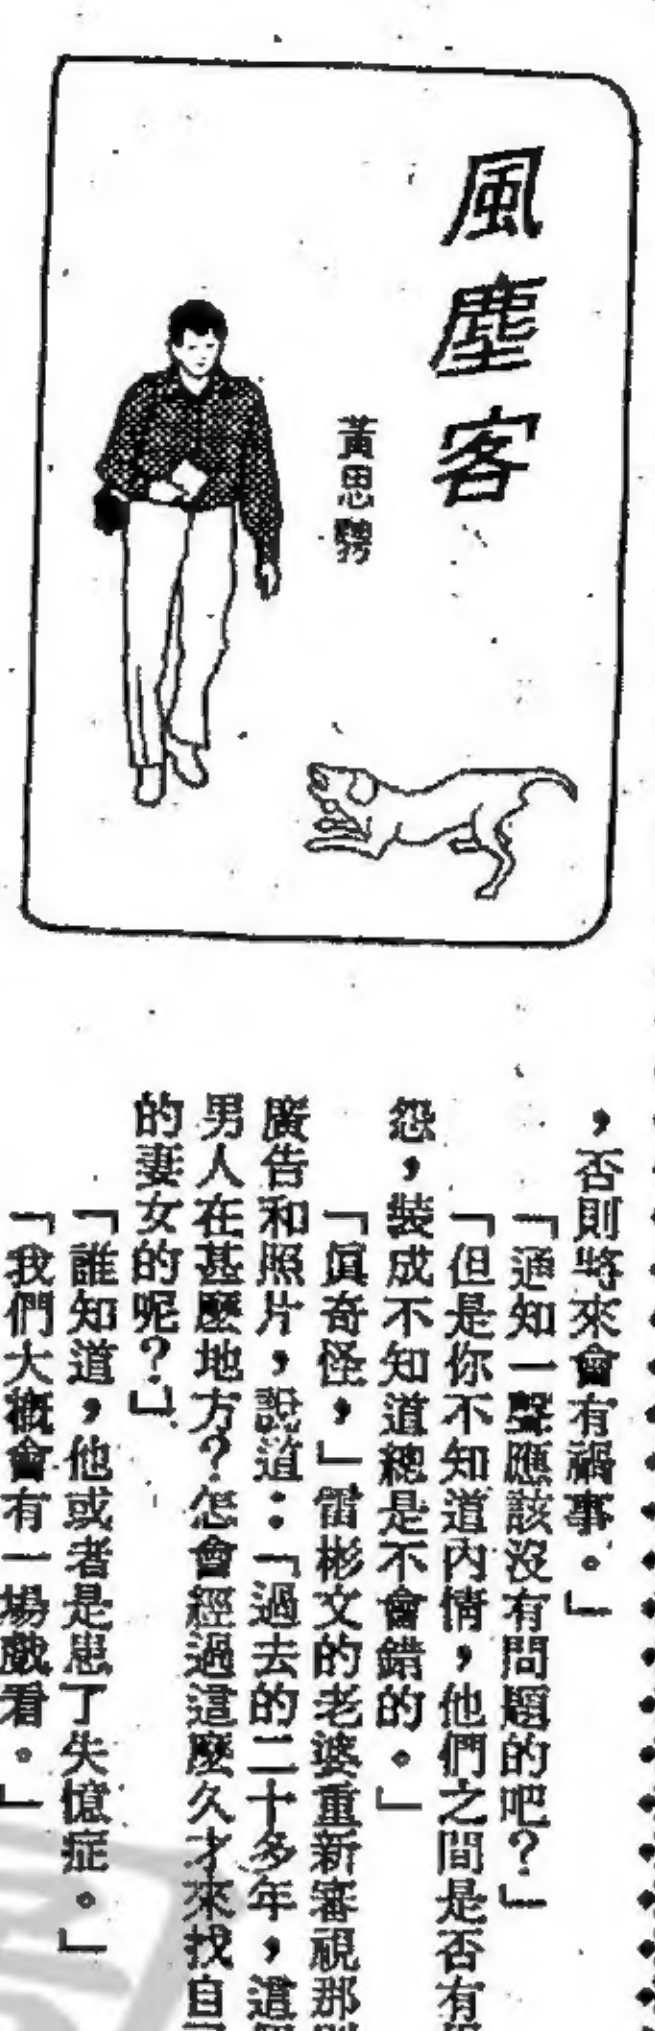 風塵客
黃思騁
,否則將來會有禍事。」
「通知一聲應該沒有問題的吧?」
「但是你不知道內情,他們之間是否有
怨,裝成不知道總是不會錯的。」
「眞奇怪,」雷彬文的老婆重新審視那
廣告和照片,說道:「過去的二十多年,這
男人在甚麼地方?怎會經過這麼久才來找自
的妻女的呢?」
「誰知道,他或者是患了失憶症。」
「我們大概會有一場戲看。」